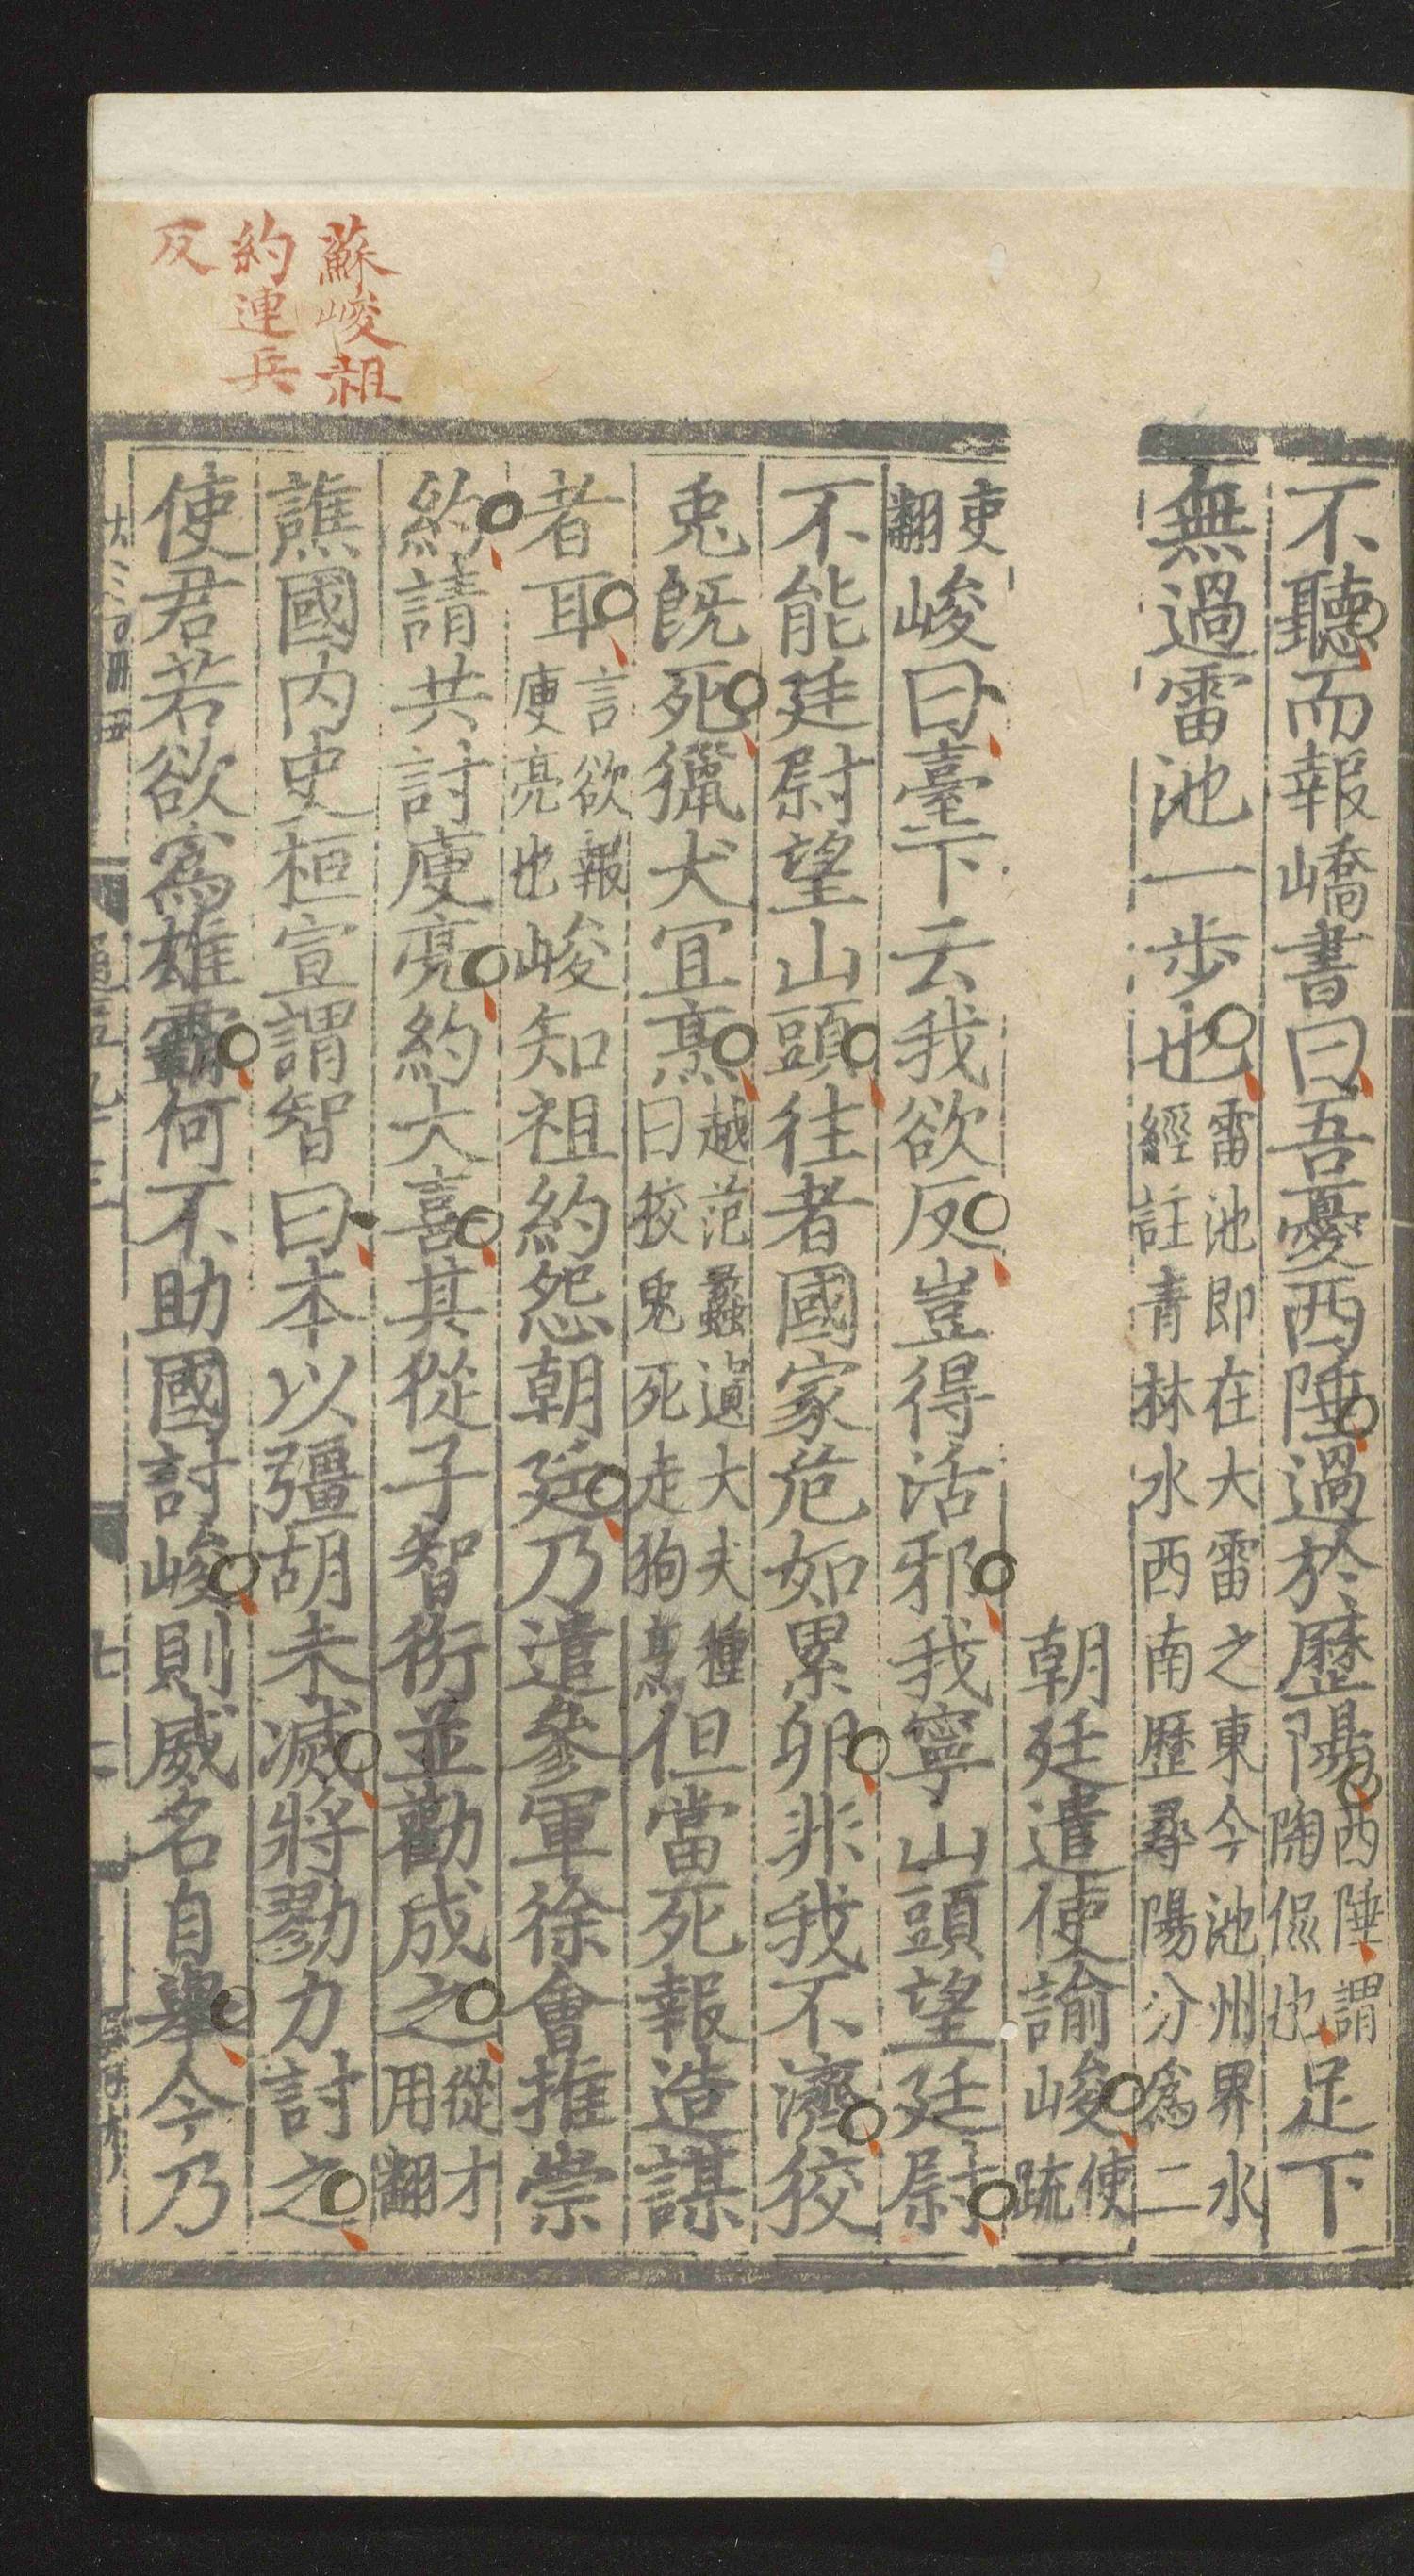 蘇峻祖
約連兵
反
不聽而報嶠書曰吾憂西陲過於歷陽西陲謂陶侃也足下
無過雷池一步也雷池即在大雷之東今池州界水經註青林水西南歷尋陽分為二
朝廷遣使諭峻使疏
吏翻峻曰臺下云我欲反豈得活邪我寧山頭望廷尉
不能廷尉望山頭往者國家危如累卵非我不濟狡
兎旣死獵犬宜烹越范蠡遺大夫種曰狡兎死走狗烹但當死報造謀
者耳言欲報庾亮也峻知祖約怨朝廷乃遣參軍徐會推崇
約請共討庾亮約大喜其從子智衍並勸成之從才用翻
譙國内史桓宣謂智曰本以彊胡未滅將勠力討之
使君若欲為雄霸何不助國討峻則威名自舉今乃